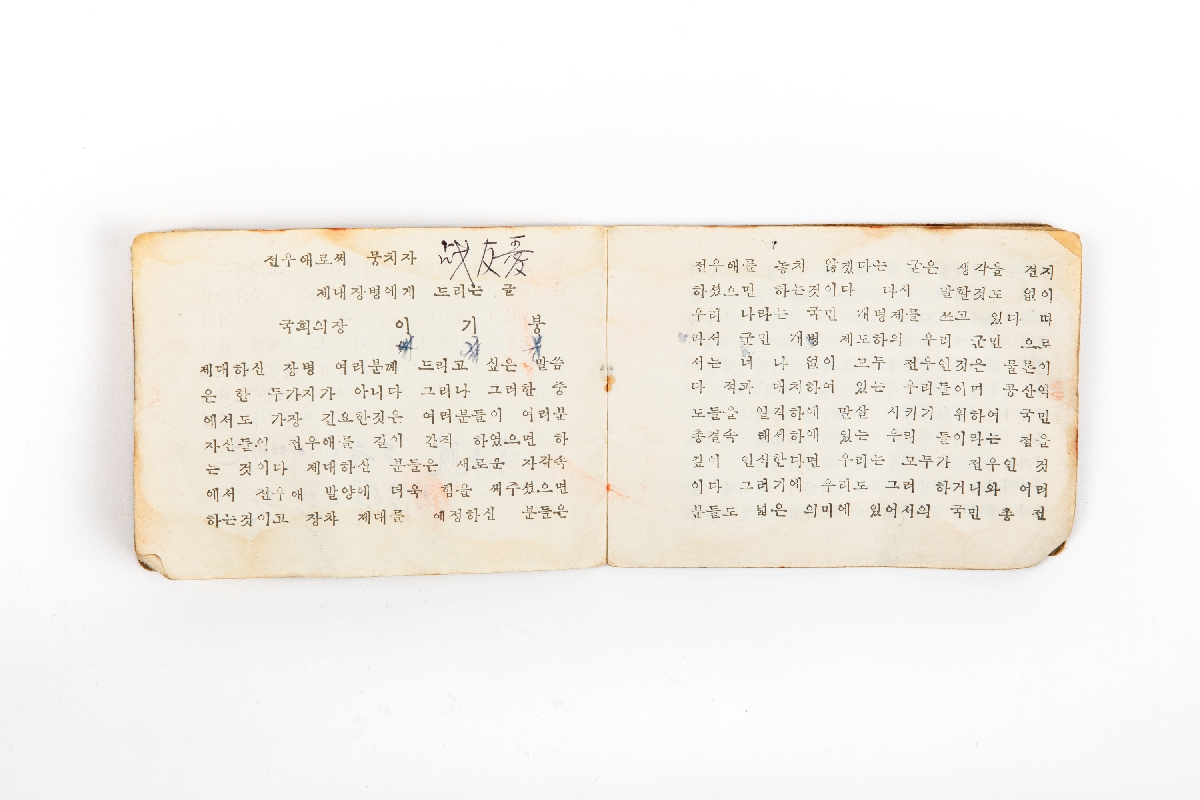 전우애로써 뭉치자 戰友愛
제대장병에게 드리는 글
국회의장 이 기 붕
제대하신 장병 여러분께 드리고 싶은 말씀
은 한 두가지가 아니다 그러나 그러한 중
에서도 가장 긴요한것은 여러분들이 여러분
자신들의 전우애를 길이 간직 하였으면 하
는 것이다 제대하신 분들은 새로운 자각속
에서 전우애 발양에 더욱 힘을 써주셨으면
하는것이고 장차 제대를 예정하신 분들은
전우애를 놓치 않겠다는 굳은 생각을 결지
하셨으면 하는것이다 다시 말할것도 없이
우리 나라는 국민 개병제를 쓰고 있다 따
라서 군민 개병 제도하의 우리 군민 으로
서는 너 나 없이 모두 전우인것은 물론이
다 적과 대치하여 있는 우리들이며 공산악
도들을 일격하에 말살 시키기 위하여 국민
총결속 태세하에 있는 우리 들이라는 점을
깊이 인식한다면 우리는 모두가 전우인 것
이다 그러기에 우리도 그러 하거니와 여러
분들도 넓은 의미에 있어서의 국민 총 전